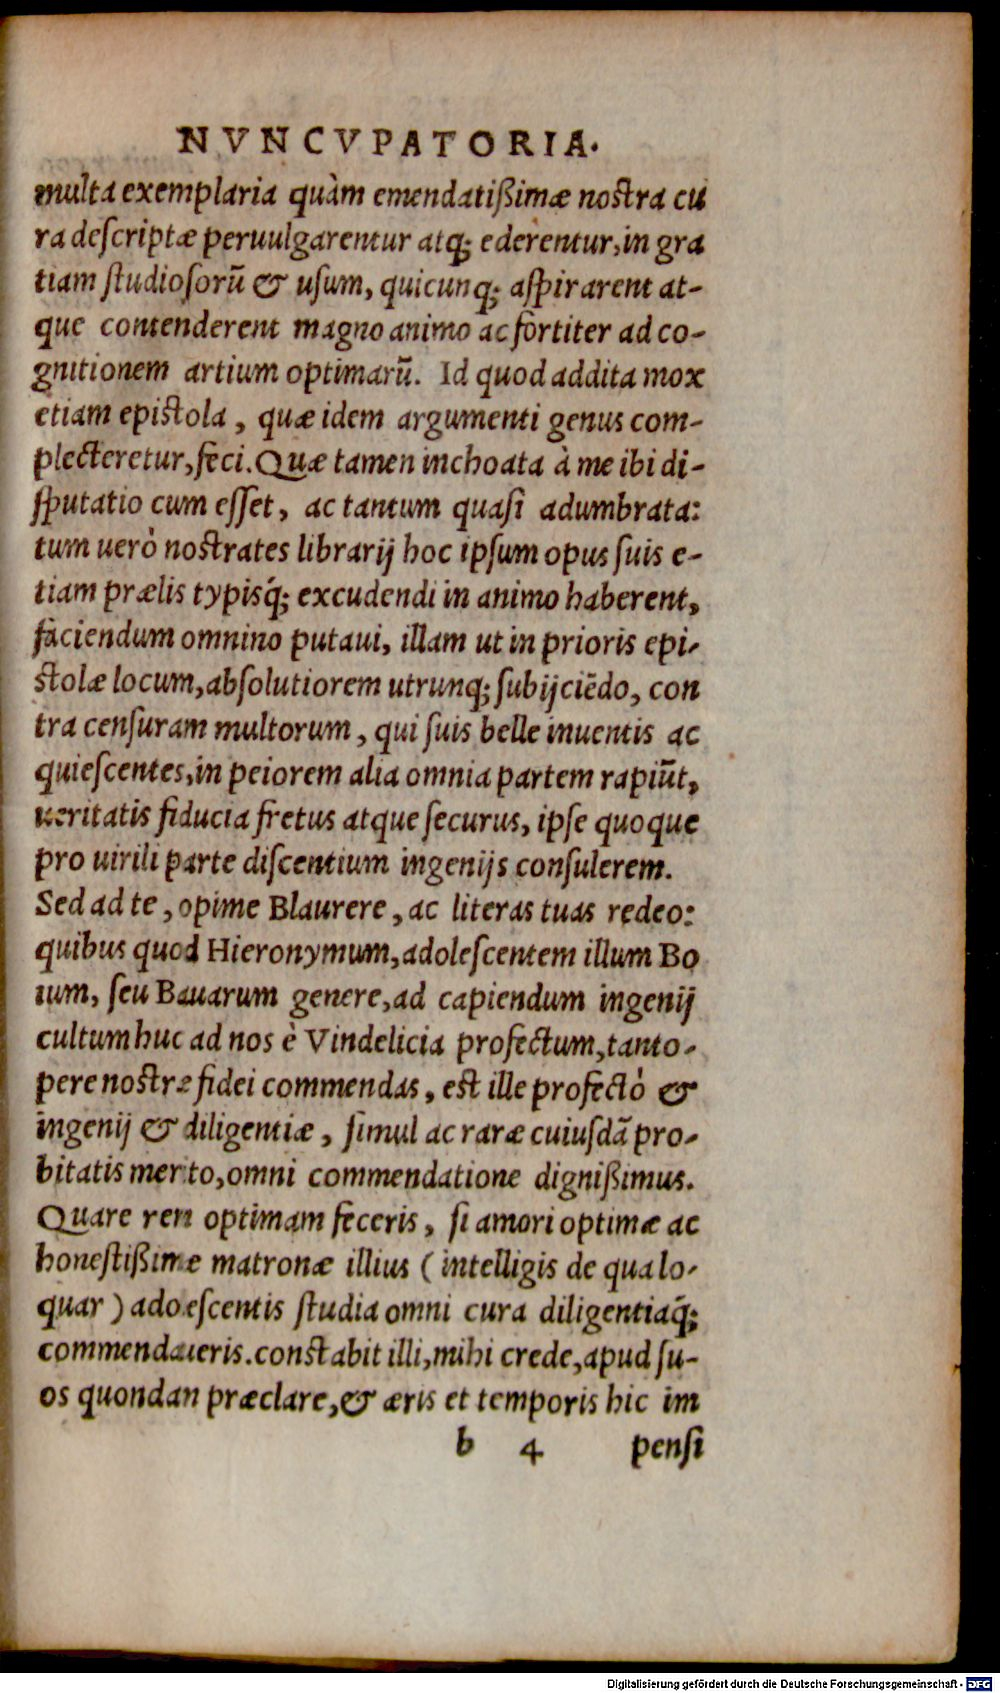 NVNCVPATORIA.
multa exemplaria quàm emendatißimæ nostra cu
ra descriptæ peruulgarentur atq; ederentur, in gra
tiam studiosorũ & usum, quicunq; aspirarent at-
que contenderent magno animo ac fortiter ad co-
gnitionem artium optimarũ. Id quod addita mox
etiam epistola, quæ idem argumenti genus com-
plecteretur, feci. Quæ tamen inchoata à me ibi di-
sputatio cum esset, ac tantum quasi adumbrata:
tum uerò nostrates librarij hoc ipsum opus suis e-
tiam prælis typisq́; excudendi in animo haberent,
faciendum omnino putaui, illam ut in prioris epi-
stolæ locum, absolutiorem utrunq; subijciẽdo, con
tra censuram multorum, qui suis belle inuentis ac
quiescentes, in peiorem alia omnia partem rapiũt,
ueritatis fiducia fretus atque securus, ipse quoque
pro uirili parte discentium ingenijs consulerem.
Sed ad te, opime Blaurere, ac literas tuas redeo:
quibus quod Hieronymum, adolescentem illum Bo
ium, seu Bauarum genere, ad capiendum ingenij
cultum huc ad nos è Vindelicia profectum, tanto-
pere nostræ fidei commendas, est ille profectò &
ingenij & diligentiæ, simul ac raræ cuiusdã pro-
bitatis merito, omni commendatione dignißimus.
Quare rem optimam feceris, si amori optimæ ac
honestißimæ matronæ illius (intelligis de qua lo-
quar) adolescentis studia omni cura diligentiaq́;
commendaueris. constabit illi, mihi crede, apud su-
os quondam præclare, & æris et temporis hic im
b 4 pensi
Digitalisierung gefördert durch die Deutsche Forschungsgemeinschaft - DFG